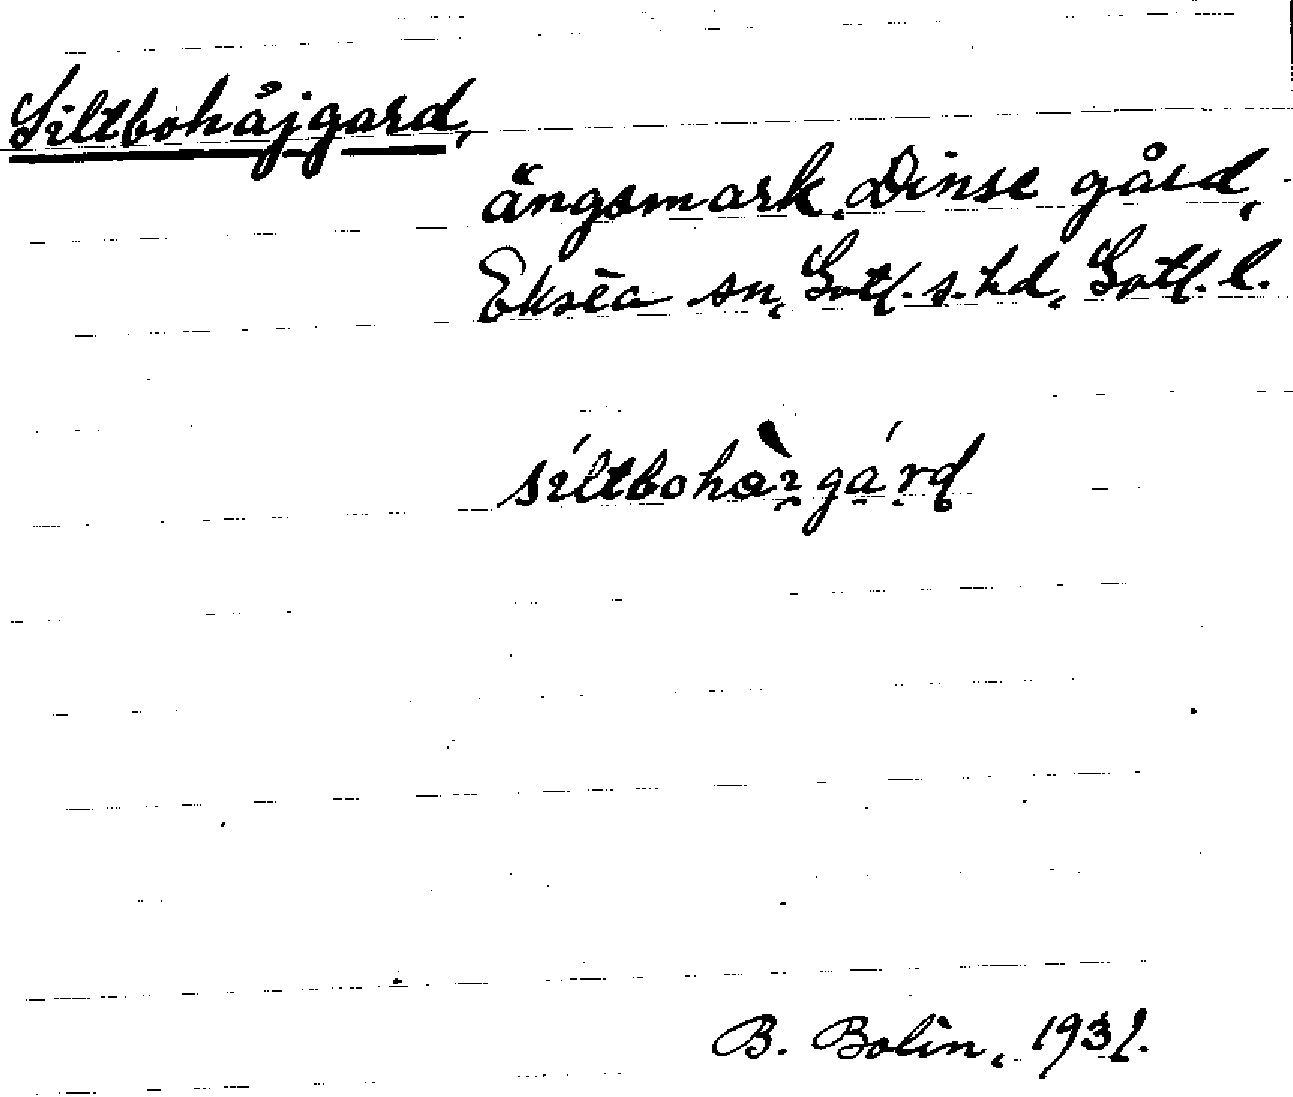 Siltbohåjgard,
ängsmark, Dinse gård,
Eksta sn, Gotl. s. hd, Gotl. l.
siltbohàigárd
B. Bolin, 1931.